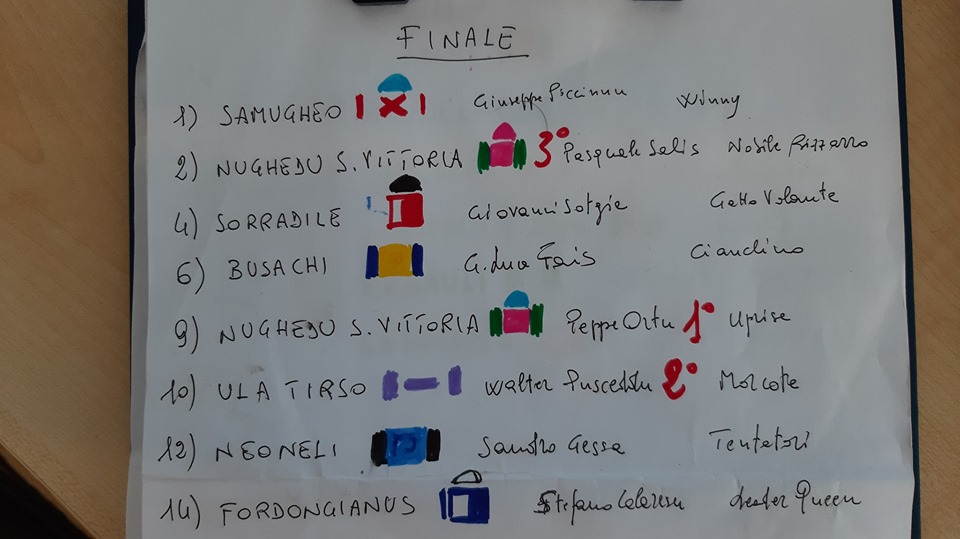 FINALE
1) SAMUGHEO Giuseppe Piccinnu Winny
2) NUGHEDU S. VITTORIA 3° Pasquale Salis Nobile Bizzarro
4) SORRADILE Giovanni Sotgia Gatto Volante
6) BUSACHI G. Luca Fais
9) NUGHEDU S. VITTORIA Peppe Ortu 1° Uprise
10) ULA TIRSO Walter Pusceddu 2° Morcote
12) NEONELI Sandro Gessa Tentatori
14) FORDONGIANUS Stefano Queen